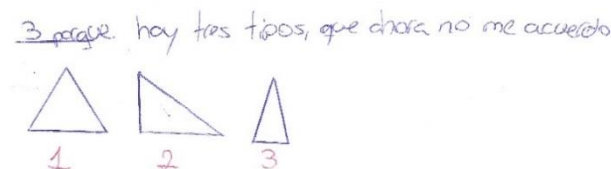 3 porque hay tres tipos, que ahora no me acuerdo
1 2 3